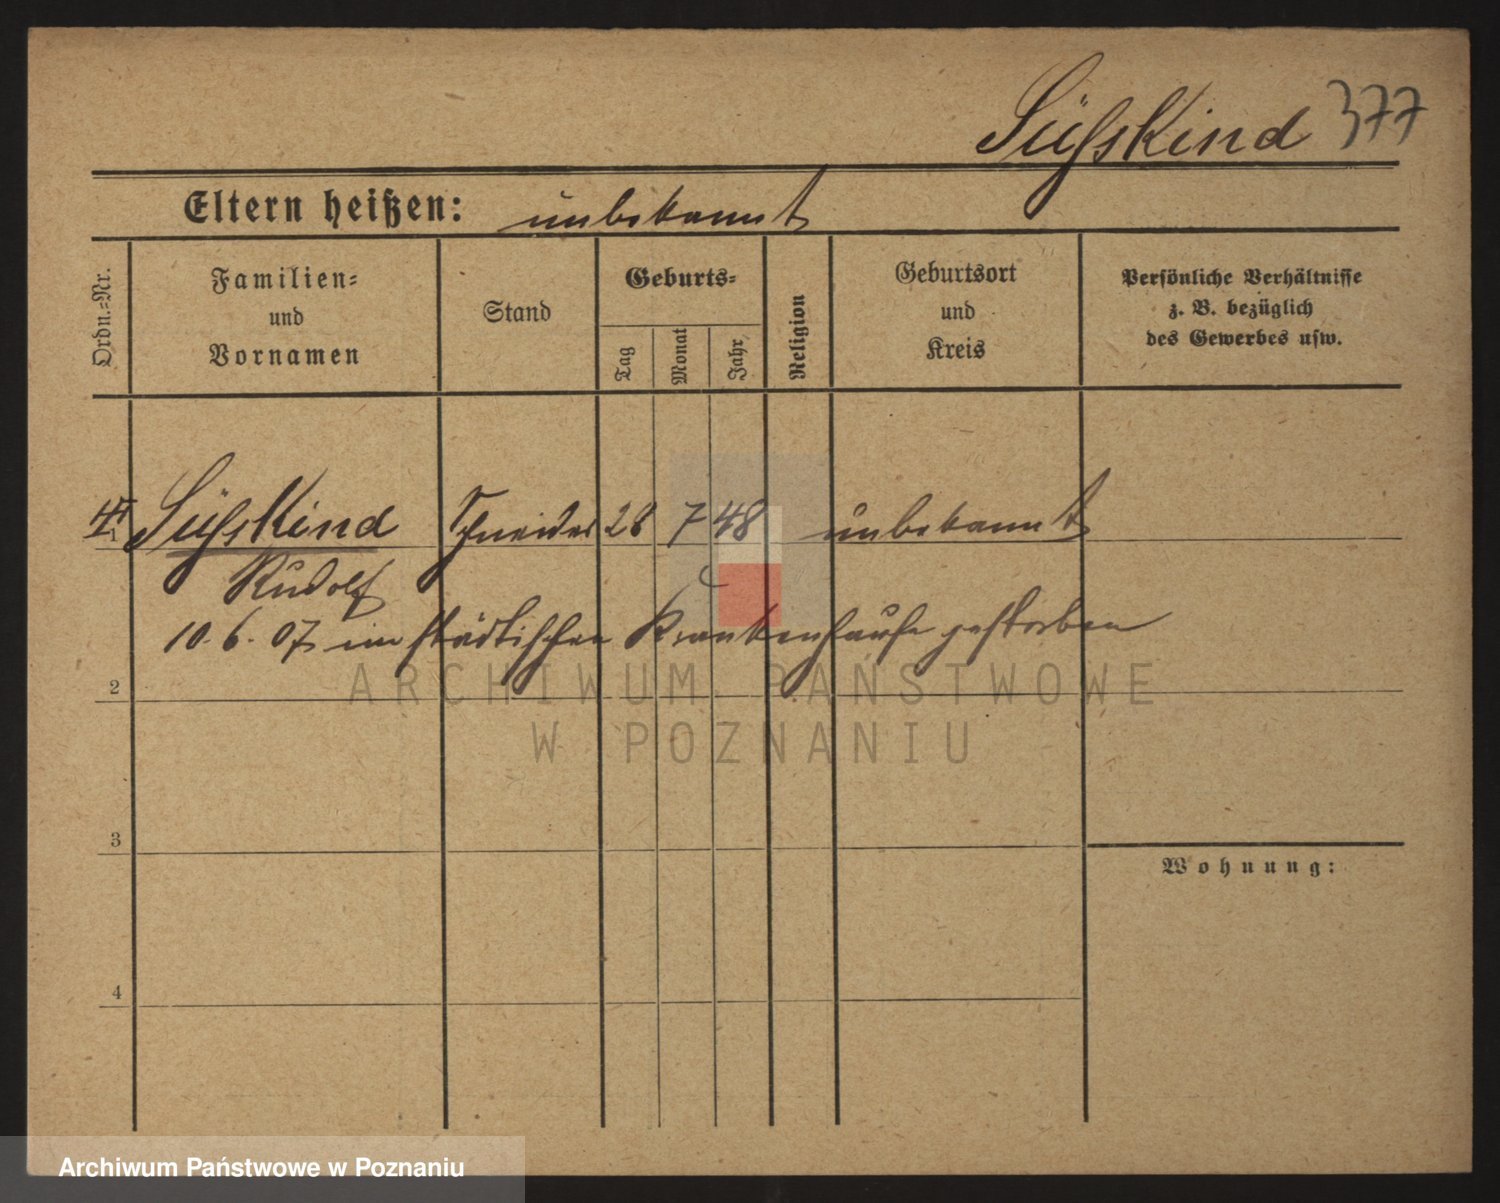 Süßskind 377
Eltern heißen: unbekannt
Ordn.-Nr.
Familien-
und
Vornamen
Stand
Geburts-
Tag
Monat
Jahr
Religion
Geburtsort
und
Kreis
Persönliche Verhältnisse
z. B. bezüglich
des Gewerbes usw.
1 Süßskind Schneider 28 7 48 unbekannt
Rudolf
10. 6. 07 im städtischen Krankenhause gestorben
2
3
4
Wohnung:
ARCHIWUM PAŃSTWOWE
W POZNANIU
Archiwum Państwowe w Poznaniu